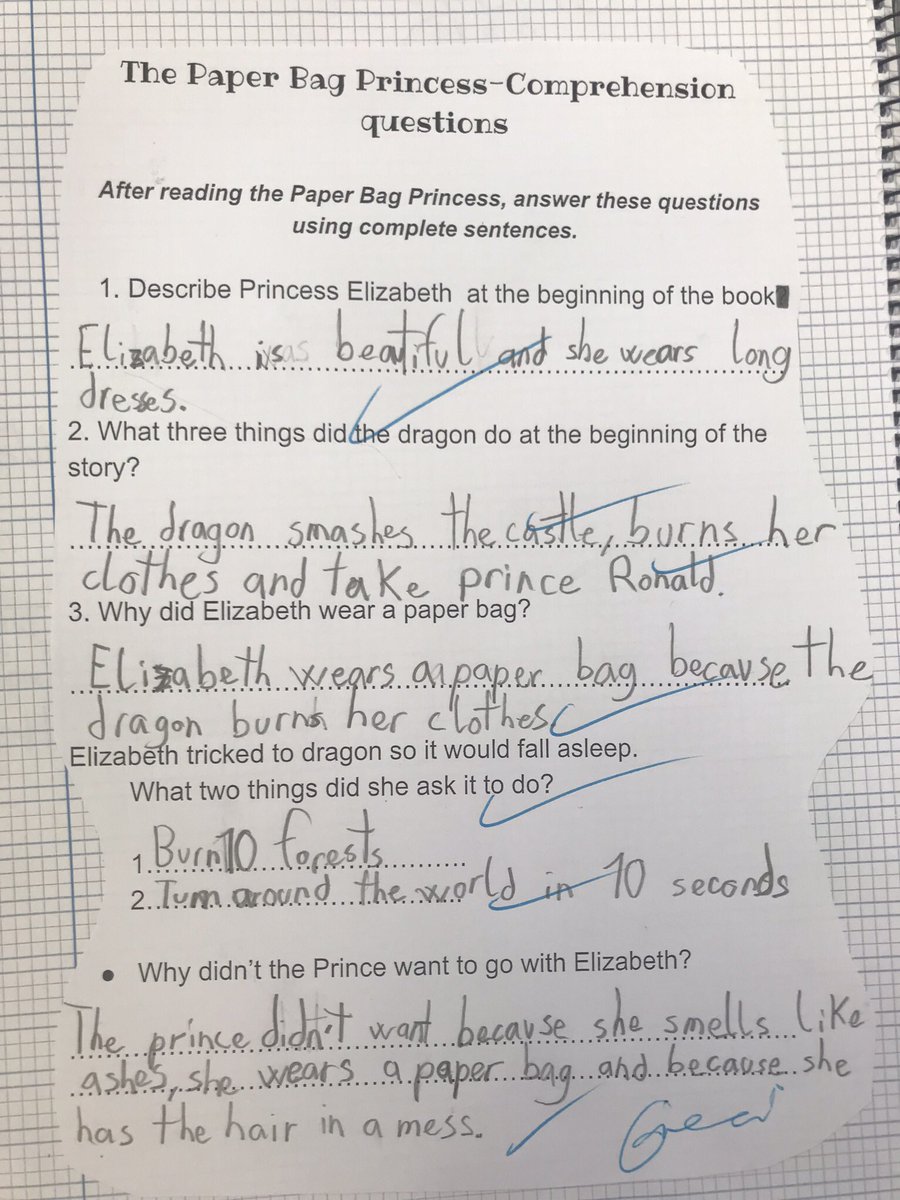 The Paper Bag Princess-Comprehension
questions
After reading the Paper Bag Princess, answer these questions
using complete sentences.
1. Describe Princess Elizabeth at the beginning of the book
Elizabeth is beatiful and she wears long
dresses.
2. What three things did the dragon do at the beginning of the
story?
The dragon smashes the castle, burns her
clothes and take prince Ronald.
3. Why did Elizabeth wear a paper bag?
Elizabeth wears a paper bag because the
dragon burns her clothes
Elizabeth tricked to dragon so it would fall asleep.
What two things did she ask it to do?
1. Burn 10 forests
2. Turn around the world in 10 seconds
• Why didn't the Prince want to go with Elizabeth?
The prince didn't want because she smells like
ashes, she wears a paper bag and because she
has the hair in a mess.
Great